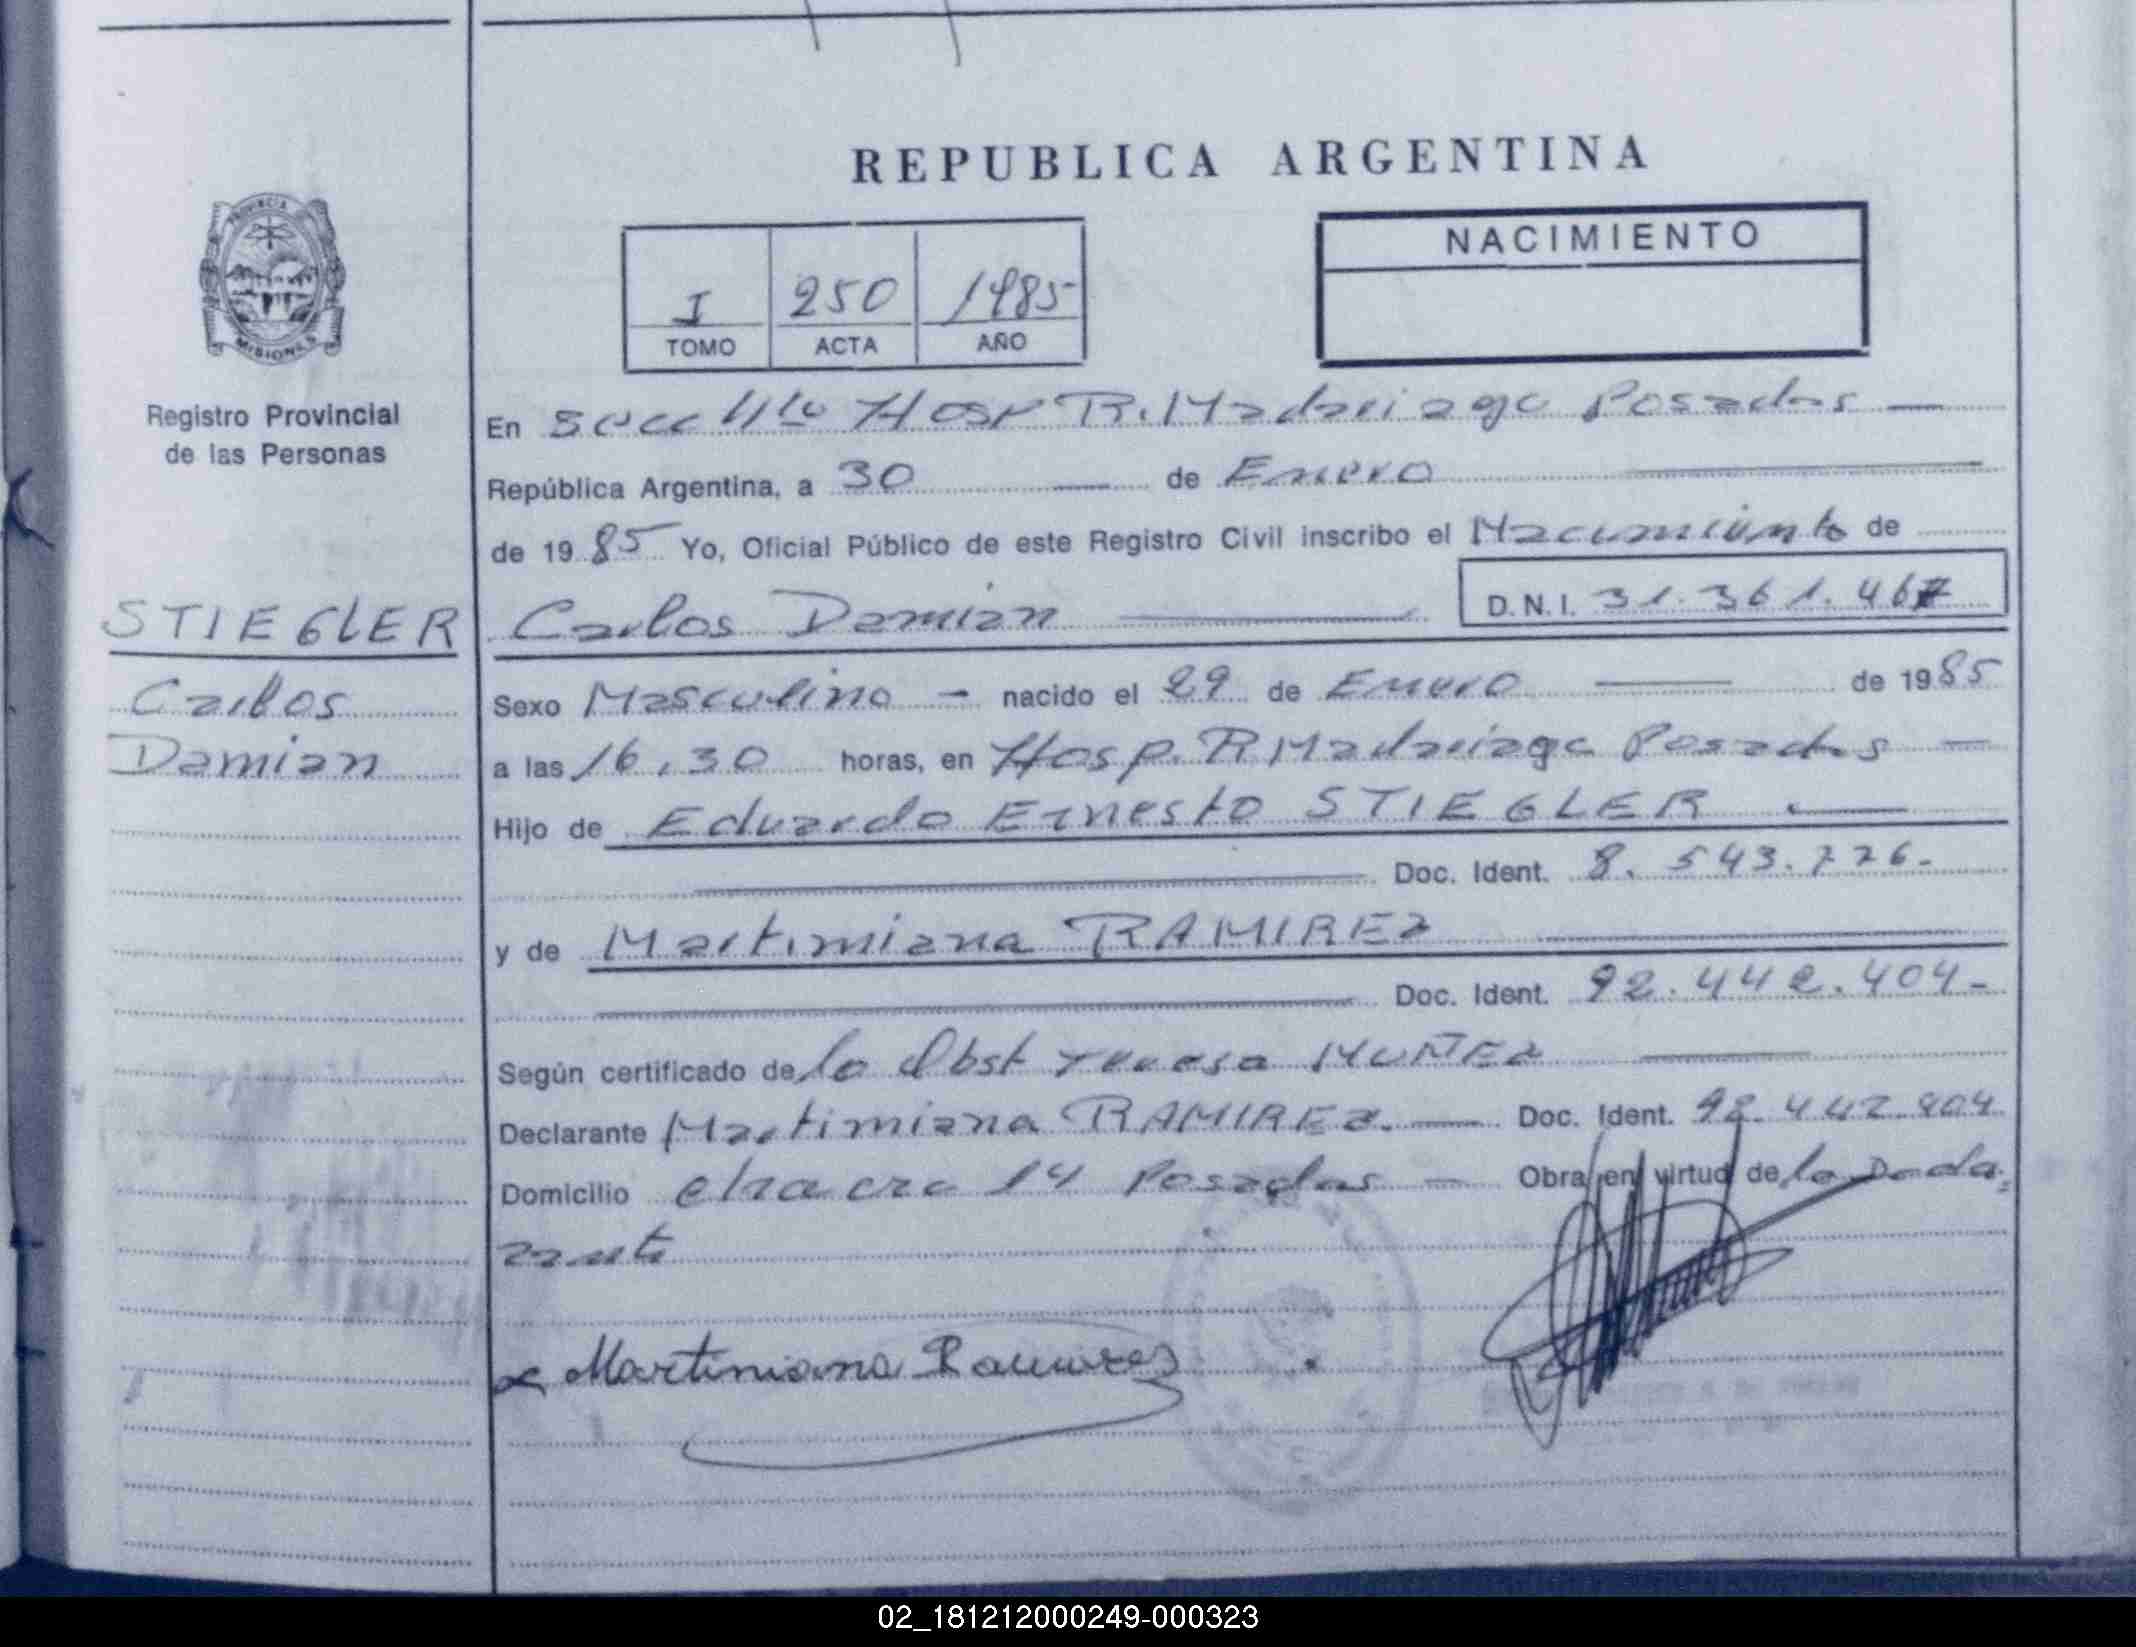 REPUBLICA ARGENTINA
PROVINCIA
MISIONES
Registro Provincial
de las Personas
I 250 1985
TOMO ACTA AÑO
NACIMIENTO
En Secc 4to Hosp R. Madariaga Posadas
República Argentina, a 30 de Enero
de 1985 Yo, Oficial Público de este Registro Civil inscribo el Nacimiento de
STIEGLER
Carlos
Damian
Carlos Damian D.N.I. 31.361.467
Sexo Masculino - nacido el 29 de Enero de 1985
a las 16,30 horas, en Hosp. R Madariaga Posadas
Hijo de Eduardo Ernesto STIEGLER
Doc. Ident. 8.543.776.-
y de Martimiana RAMIREZ
Doc. Ident. 92.442.404-
Según certificado de la Obst Teresa MUÑEZ
Declarante Martimiana RAMIREZ. Doc. Ident. 92.442.404
Domicilio chacra 14 Posadas Obra en virtud de la Decla
rante
Martiniana Ramirez
02_181212000249-000323